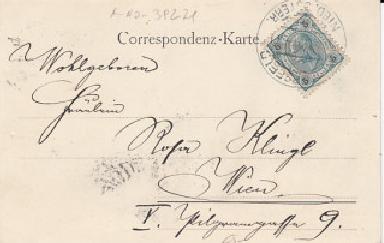 A-NÖ-3P221
Correspondenz-Karte
Wohlgeboren
Fräulein
Rosa Klingl
Wien
V. Pilgramgasse 9.